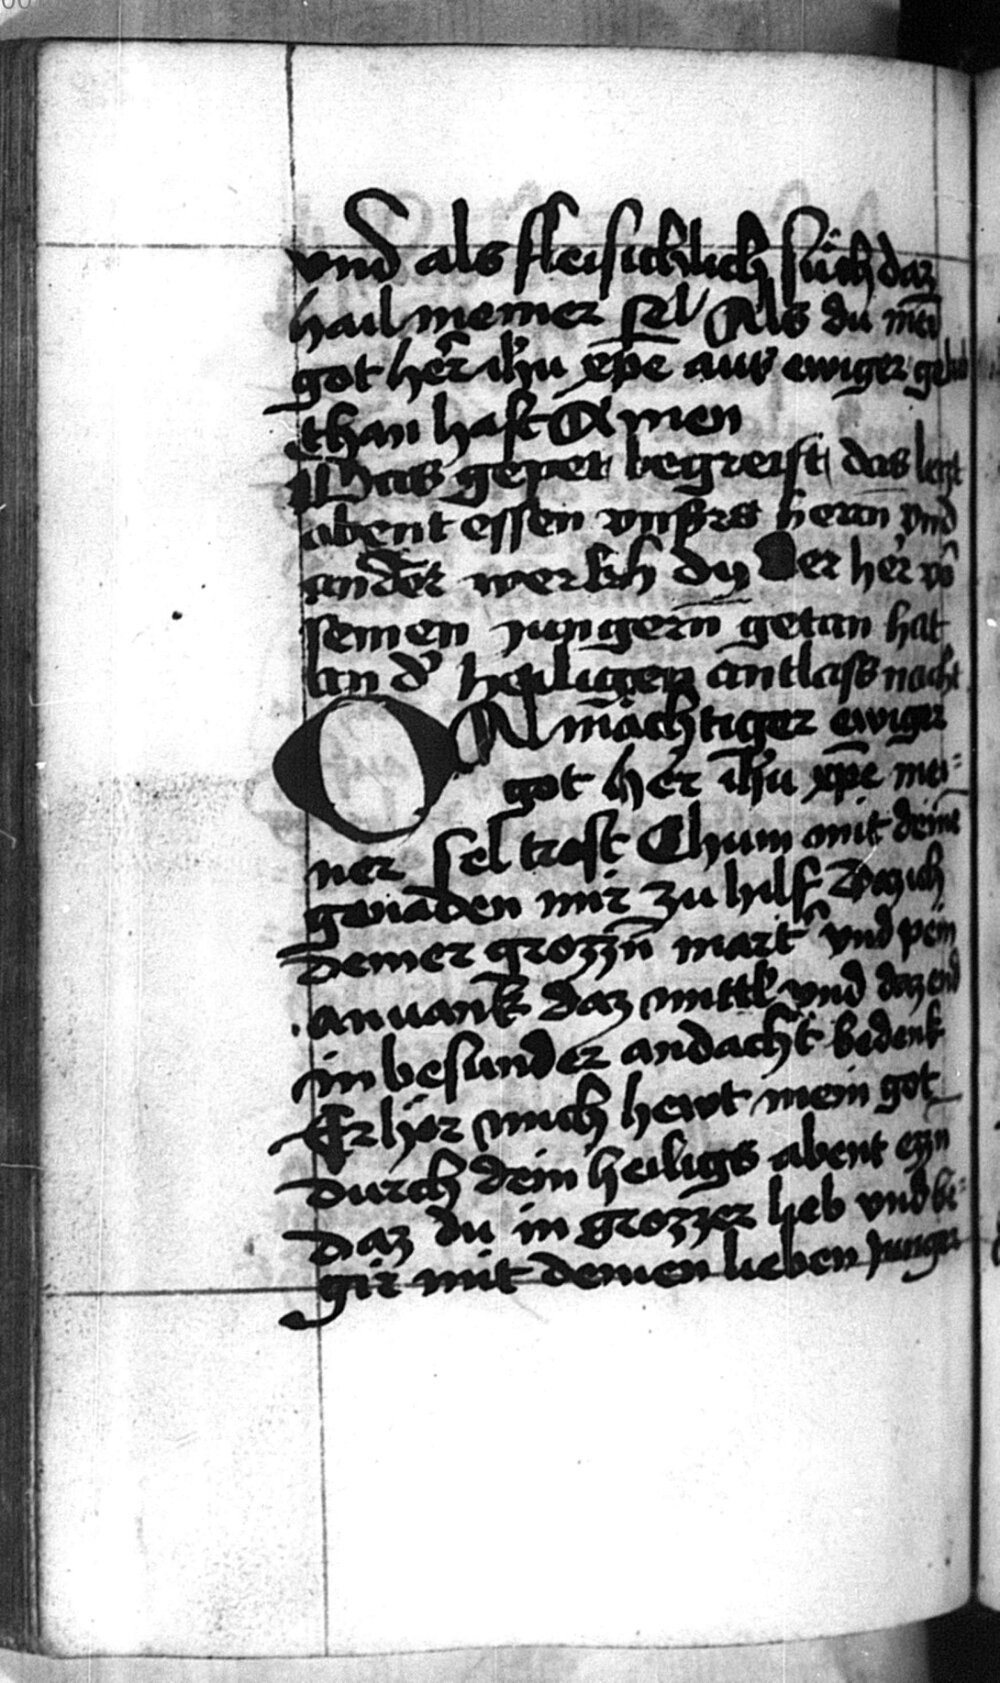 vnd als fleisicklich süch daz
hail meiner sel Als du mei
got her̄ ih̄u xp̄e auf ewiger
than hast Amen
Das gepet begreift das letzt
abent essen vnsers herrn̄ vnd
ander werkh dy der her vō
seinen iungern̄ getan hat
an d' heiligen antlass nacht
O Almächtiger ewiger
got her ih̄u xp̄e mei=
ner sel trost Chum mit deine
genaden mir zu hilf Daz ich
deiner grozzn̄ mart' vnd pein
anuankh daz mittl' vnd daz end
in besunder andacht bedenk
Erhör mich hewt mein got
durch dein heiligs abent ezzn
daz du in grozzer lieb vnd be=
gir mit deinen lieben Junger